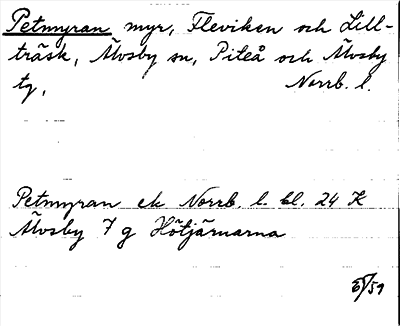 Petmyran myr, Fleviken och Lill-
träsk, Älvsby sn, Piteå och Älvsby
tg, Norrb. l.
Petmyran ek Norrb. l. bl. 24 K
Älvsby 7 g Hötjärnarna
/59